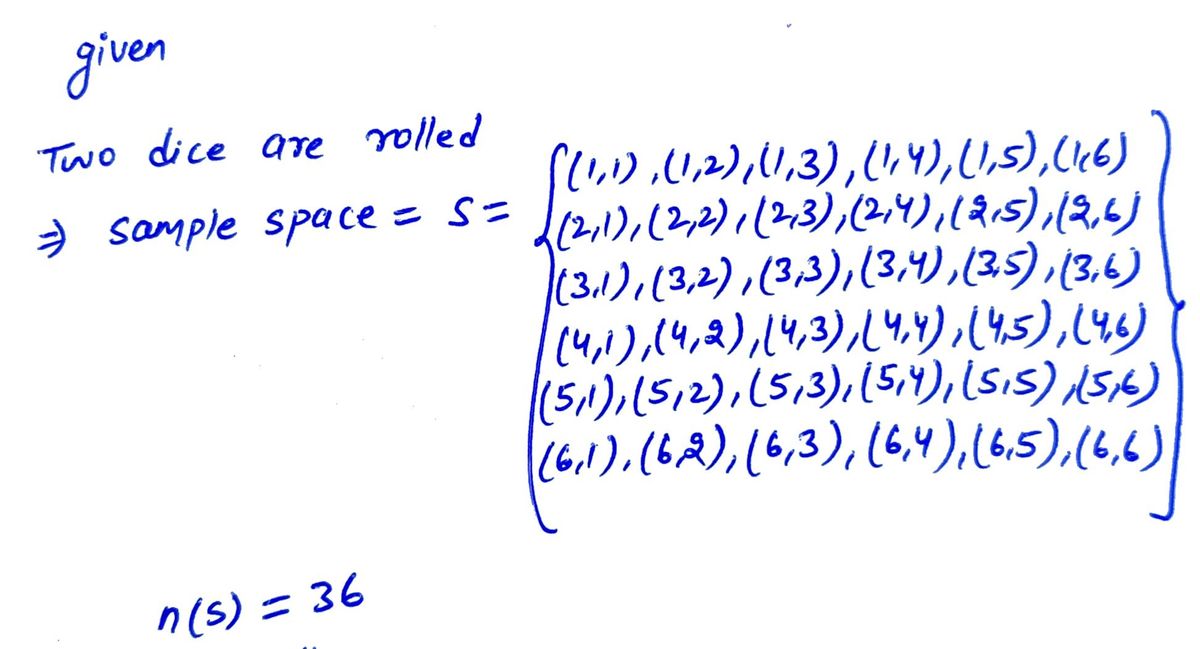 given
Two dice are rolled
⇒ sample space = S = {(1,1), (1,2), (1,3), (1,4), (1,5), (1,6)
(2,1), (2,2), (2,3), (2,4), (2,5), (2,6)
(3,1), (3,2), (3,3), (3,4), (3,5), (3,6)
(4,1), (4,2), (4,3), (4,4), (4,5), (4,6)
(5,1), (5,2), (5,3), (5,4), (5,5), (5,6)
(6,1), (6,2), (6,3), (6,4), (6,5), (6,6)}
n(S) = 36